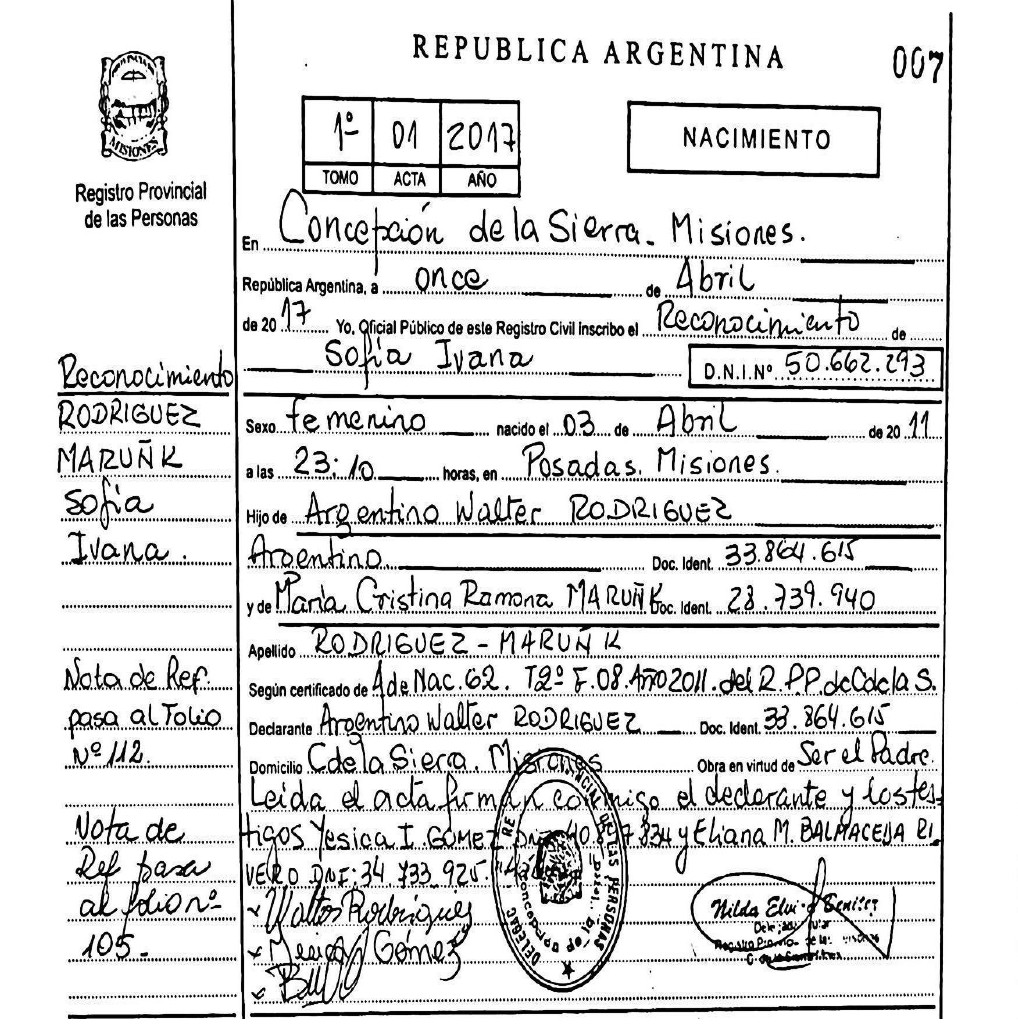 REPUBLICA ARGENTINA
007
MISIONES
Registro Provincial
de las Personas
1º 01 2017
TOMO ACTA AÑO
NACIMIENTO
En Concepción de la Sierra. Misiones.
República Argentina, a once de Abril
de 2017 Yo, Oficial Público de este Registro Civil Inscribo el Reconocimiento de
Sofía Ivana D.N.I.Nº 50.662.293
Sexo femenino nacido el 03 de Abril de 2011
a las 23:10 horas, en Posadas. Misiones.
Hijo de Argentino Walter RODRIGUEZ
Argentino Doc. Ident. 33.864.615
y de María Cristina Ramona MARUÑK Doc. Ident. 28.739.940
Apellido RODRIGUEZ - MARUÑK
Según certificado de A de Nac. 62. Tº2º F.08. Año 2011. del R.P.P. de C de la S.
Declarante Argentino Walter RODRIGUEZ Doc. Ident. 33.864.615
Domicilio C de la Sierra. Misiones Obra en virtud de Ser el Padre.
Leída el acta firman conmigo el declarante y los tes-
tigos Yesica I. GOMEZ y Eliana M. BALMACEDA RI
VERO DNI: 34.733.925.
Reconocimiento
RODRIGUEZ
MARUÑK
Sofía
Ivana.
Nota de Ref.
pasa al Folio
Nº 112.
Nota de
Ref pasa
al folio nº
105.-
Walter Rodrigues
Gómez
Nilda Benitez
DELEGAC REG PROVINCIAL DE LAS PERSONAS
Concepción de la Sierra